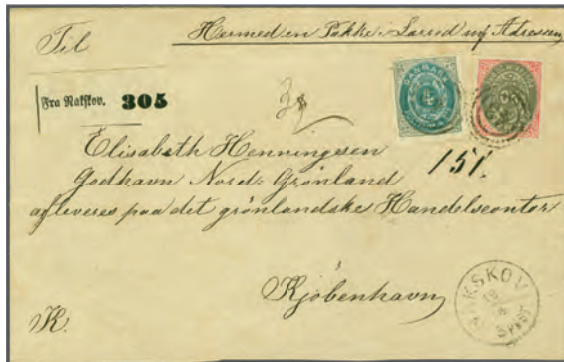 Til
Hermed en Pakke i Lærred mrk Adressen
Fra Nakskov. 305
DANMARK
4
Elisabeth Henningsen
151.
Godhavn Nord: Grønland
afleveres paa det grønlandske Handelscontor
Kjøbenhavn
K.
NAKSKOV